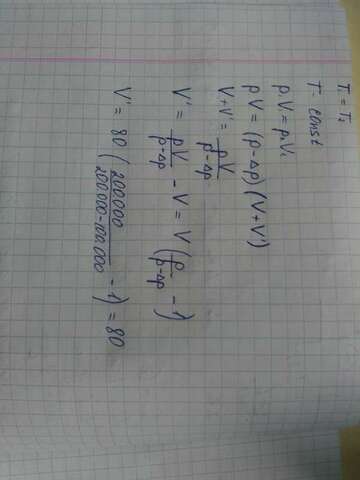 T₁ = T₂
T - const
p₁V₁ = p₂V₂
pV = (p-Δp)(V+V')
V+V' = pV/p-Δp
V' = pV/p-Δp - V = V(p/p-Δp - 1)
V' = 80(200.000/200.000-100.000 - 1) = 80